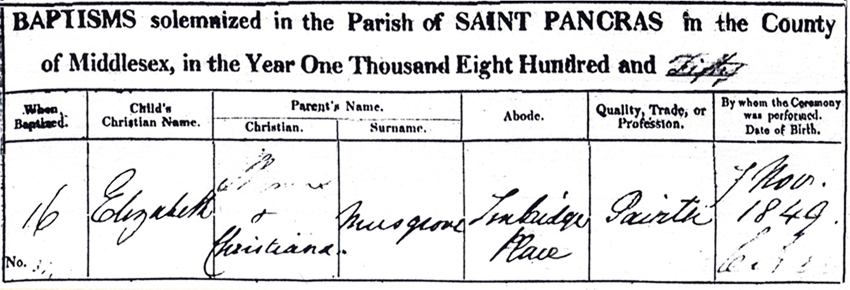 BAPTISMS solemnized in the Parish of SAINT PANCRAS in the County
of Middlesex, in the Year One Thousand Eight Hundred and Fifty
When Baptized.
Child's Christian Name.
Parent's Name.
Christian.
Surname.
Abode.
Quality, Trade, or Profession.
By whom the Ceremony was performed. Date of Birth.
16
Elizabeth
&
Christiana.
Musgrove
Tonbridge
Place
Painter
7 Nov.
1849.
No.